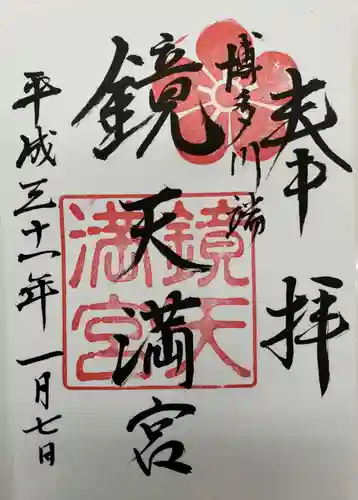 奉拝
博多川端
鏡天満宮
平成三十一年一月七日
鏡天
満宮